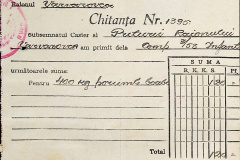 Raionul Varvarovca
Chitanța Nr. 1395
Subsemnatul Casier al Preturii Raionului
Varvarovca am primit dela Comp. 2/56 Infant
următoarele sume:
Pentru 400 kg porumb boabe
SUMA
R.K.K.S.
120
Total
120